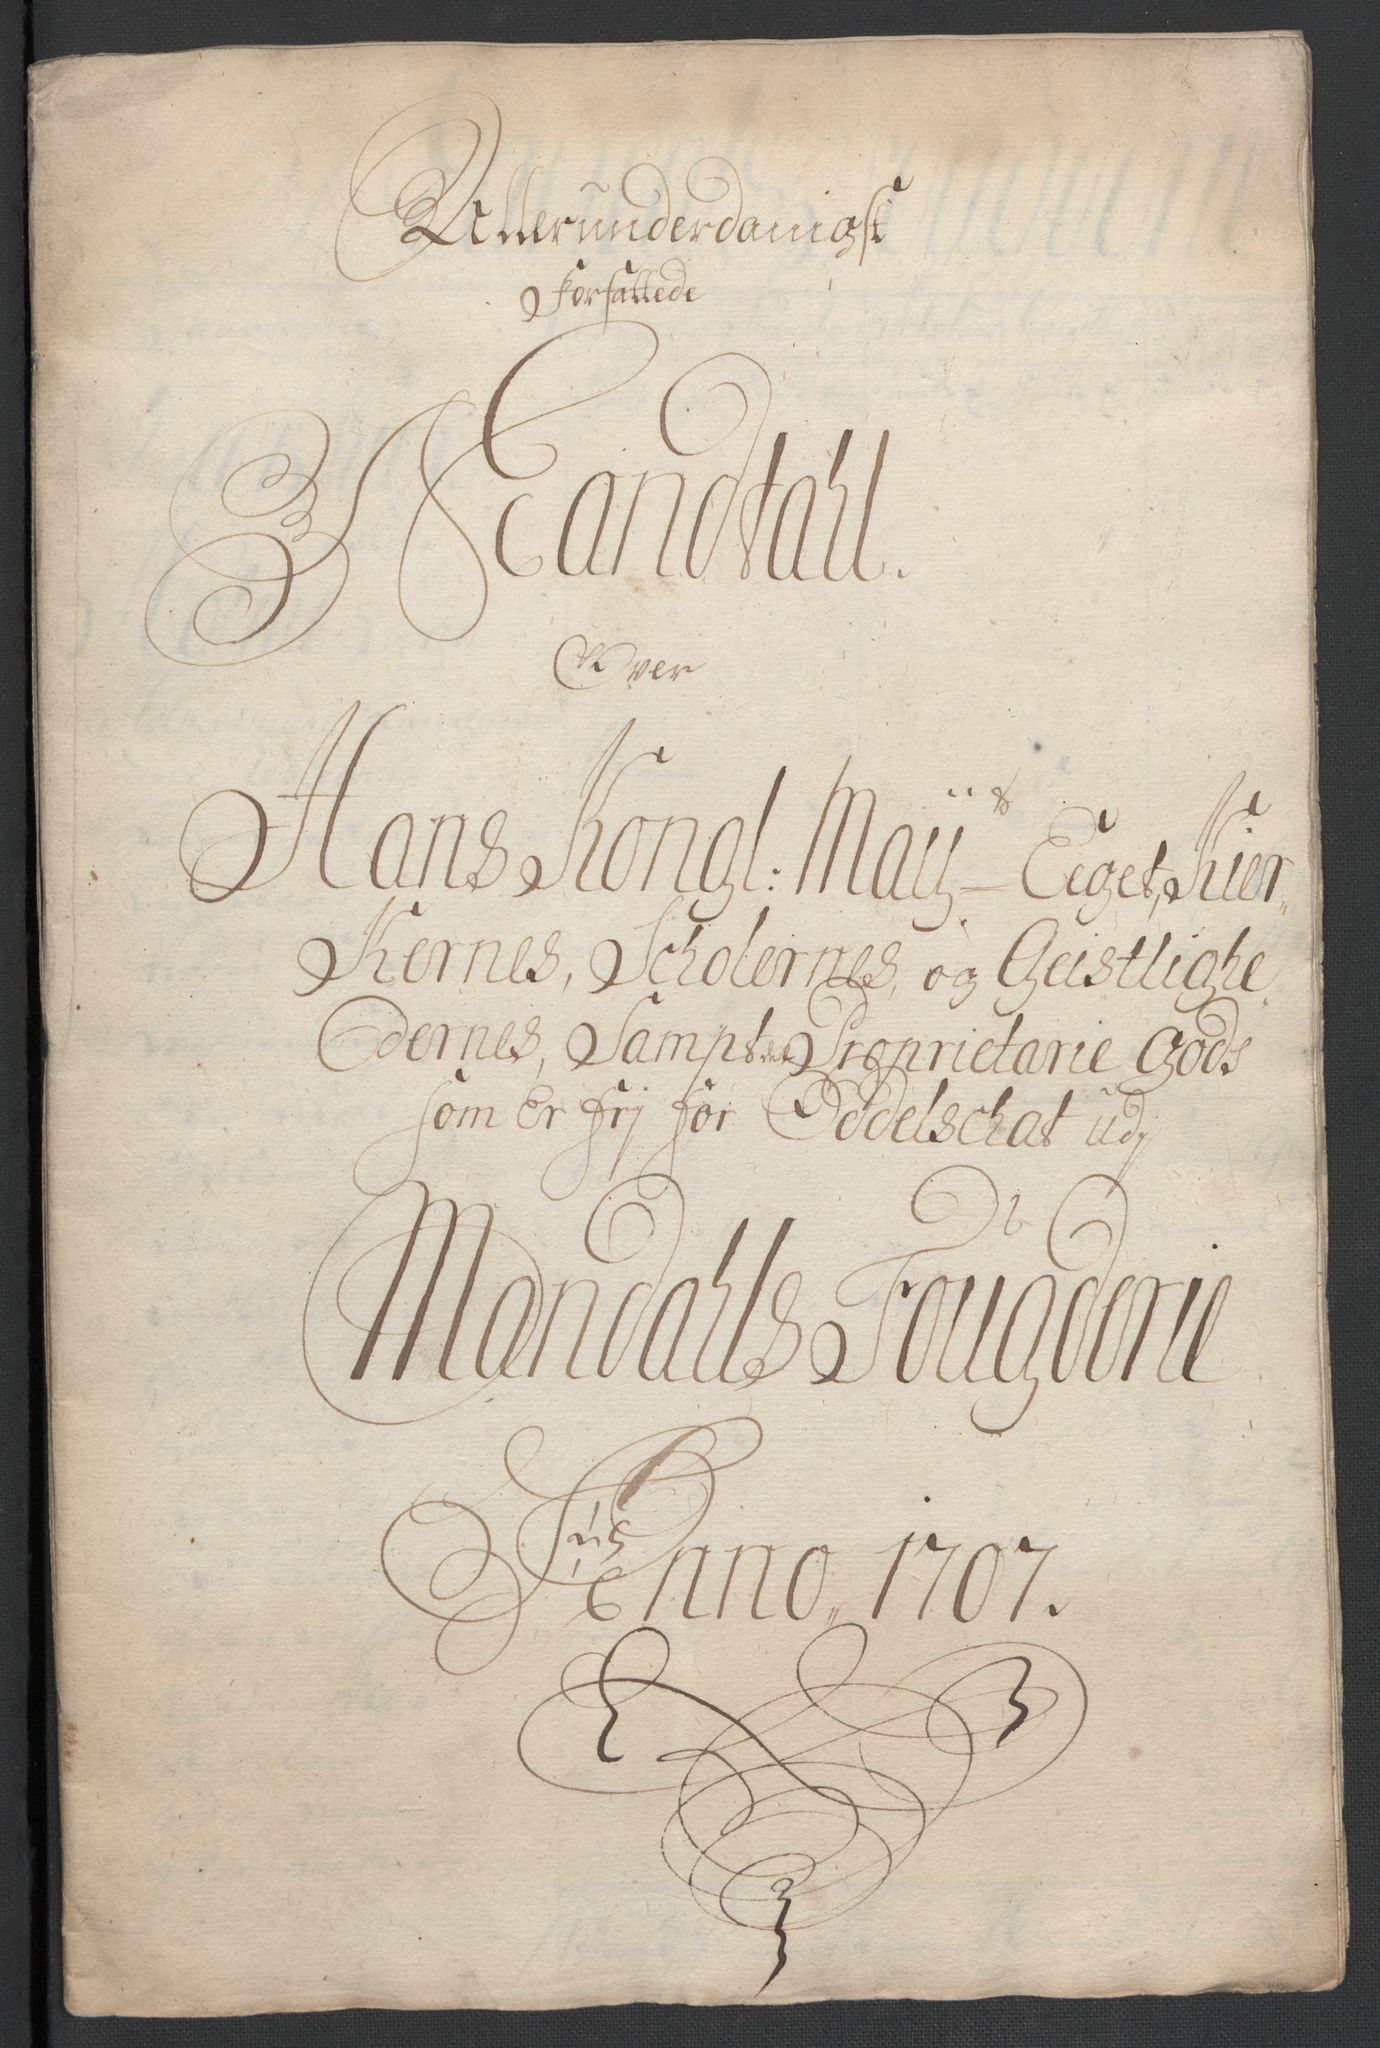 Allerunderdanigst
forfattede
Mandtall.
Over
Hans Kongl: Maÿts Eiget, Kier„
Kernes, Scholernes, og Geistlighe„
dernes, Sampt Proprietarie Gods
som Er frj for Oddelschat udj
Mandahls Fougderie
Anno„ 1707.